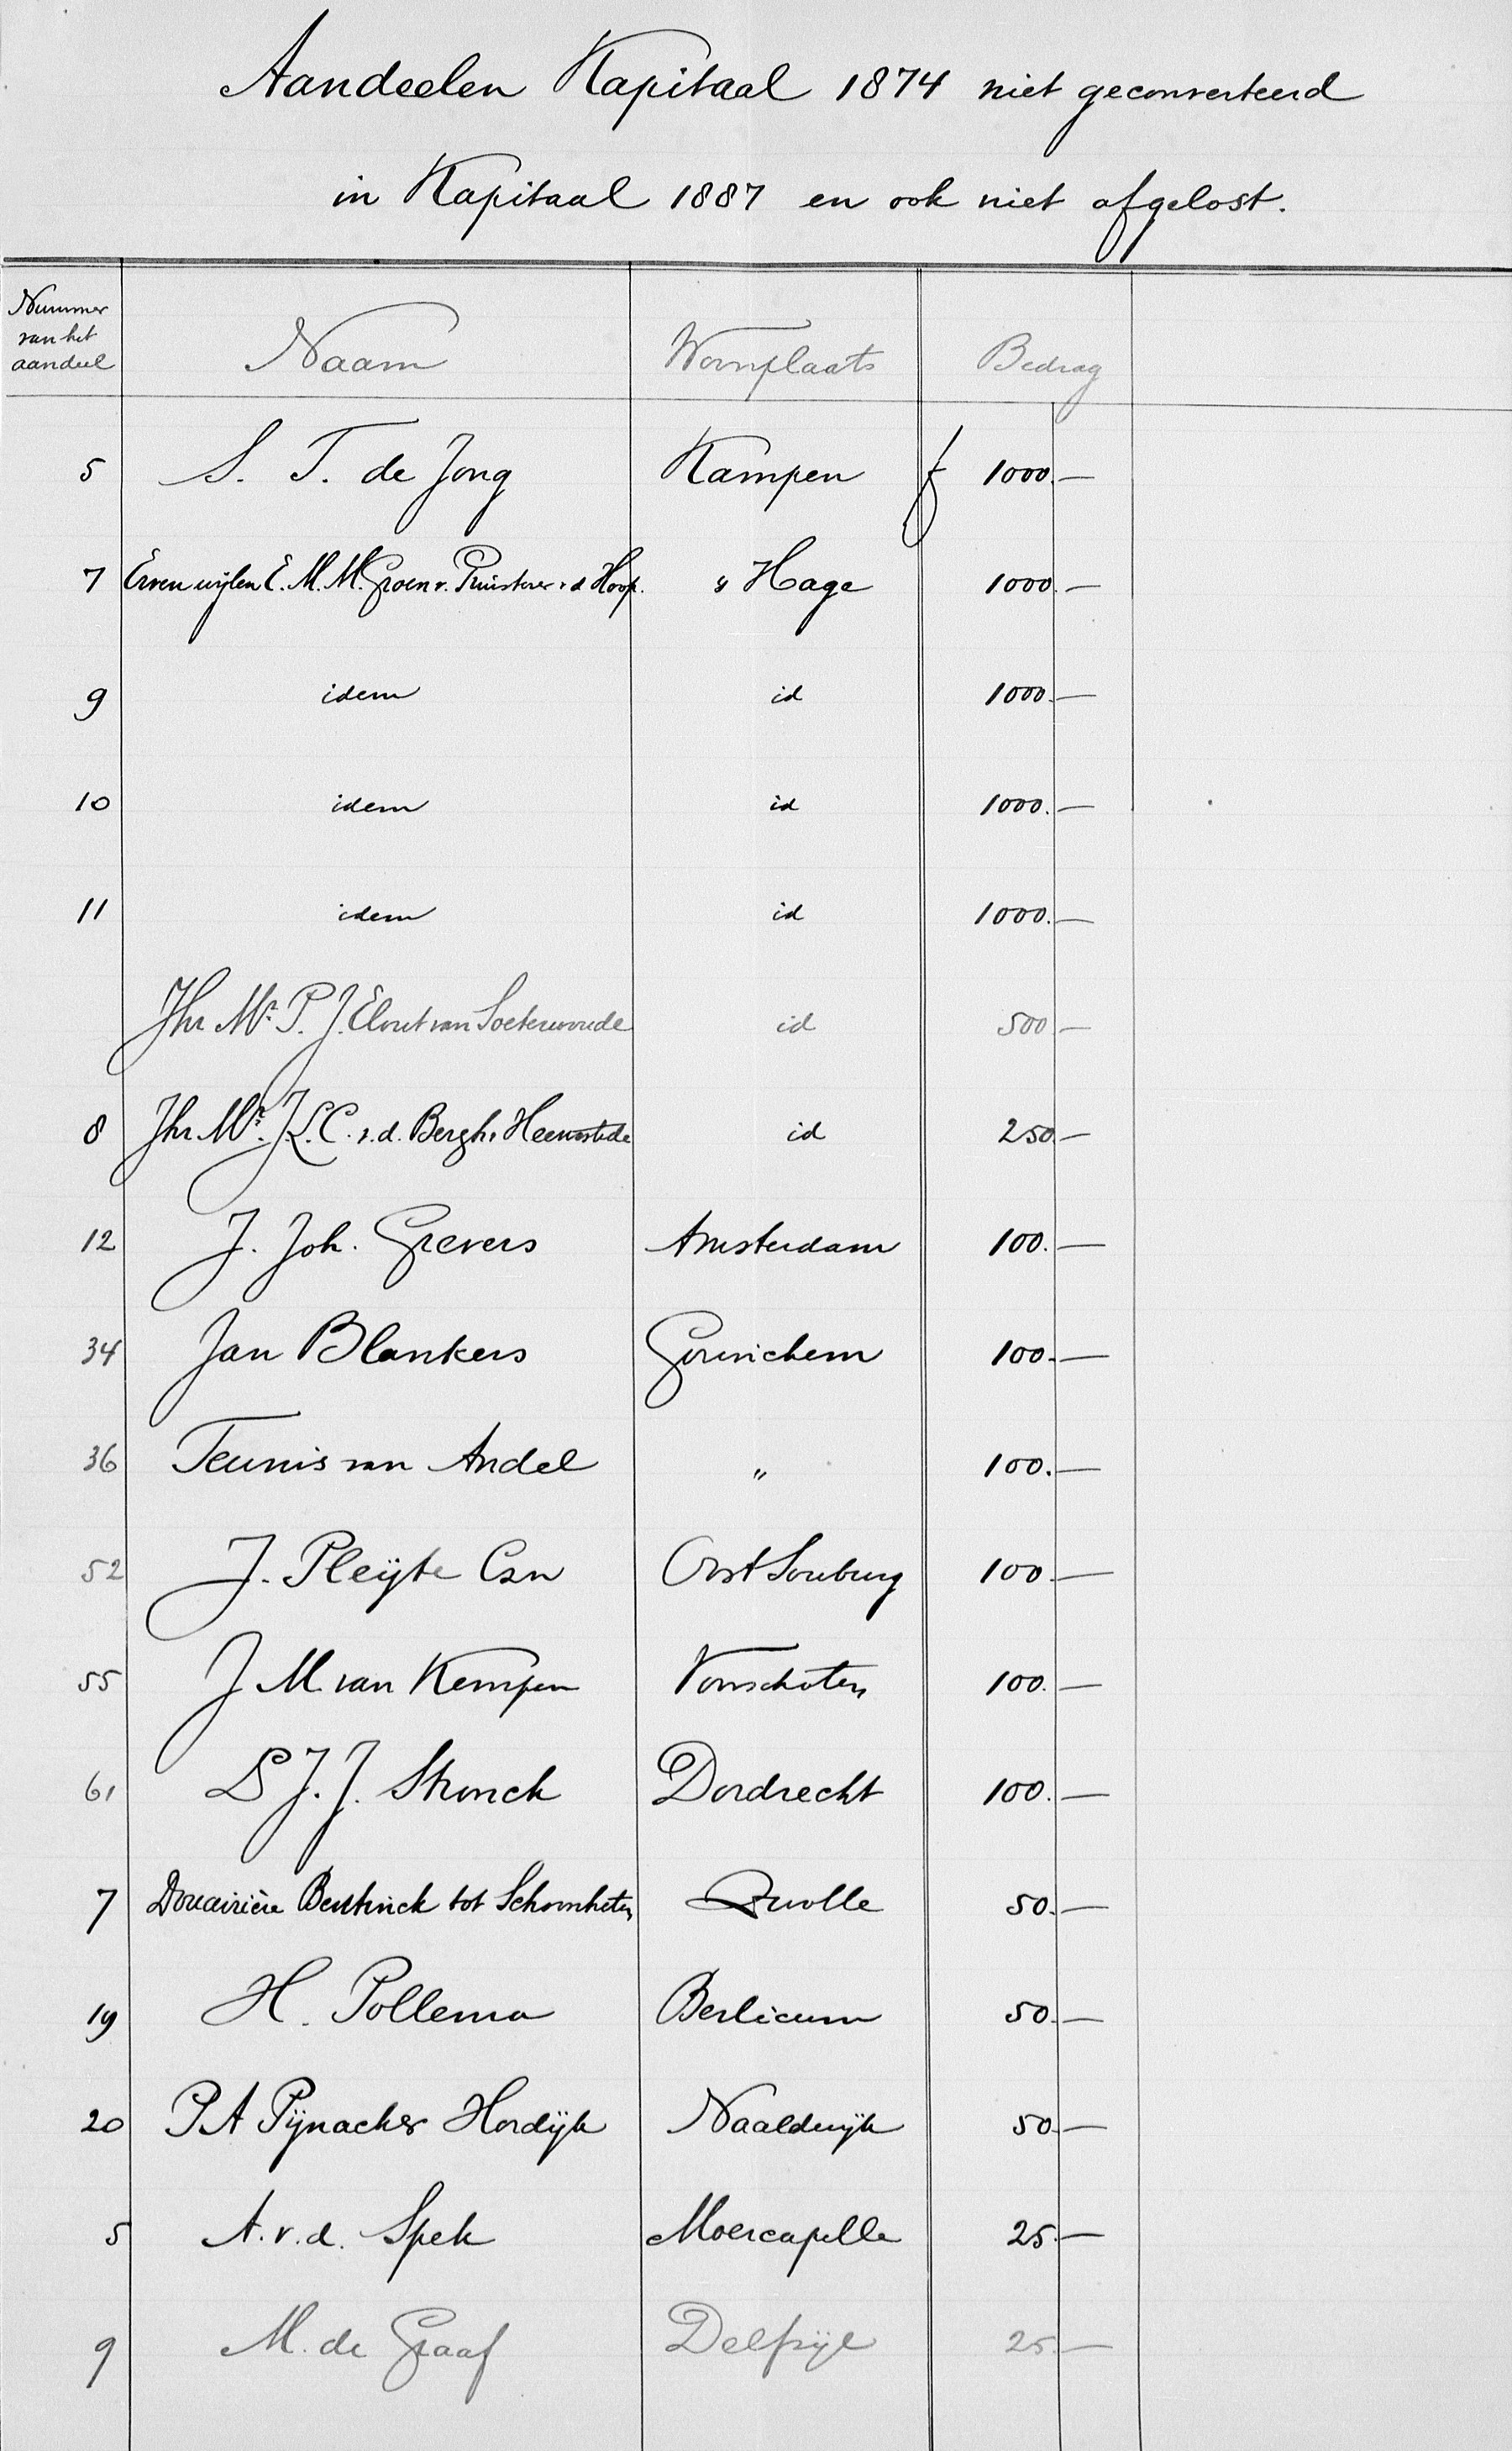 Aandeelen Kapitaal 1874 niet geconverteerd
in Kapitaal 1887 en ook niet afgelost.
Nummer van het aandeel Naam Woonplaats Bedrag
5 S. T. de Jong Kampen f 1000.—
7 Erven wijlen E. M. M. Groen v. Prinsterer v d Hoop. 's Hage 1000.—
9 idem id 1000.—
10 idem id 1000.—
11 idem id 1000.—
Jhr Mr. P. J. Elout van Soeterwoude id 500.—
8 Jhr. Mr. J. L. C. v. d. Bergh v Heemstede id 250.—
12 J. Joh. Grevers Amsterdam 100.—
34 Jan Blankers Gorinchem 100.—
36 Teunis van Andel " 100.—
52 J. Pleijte Czn Oost Souburg 100.—
55 J M. van Kempen Voorschoten 100.—
61 Ds J. J. Stronck Dordrecht 100.—
7 Douairière Bentinck tot Schoonheten Zwolle 50.—
19 H. Pollema Berlicum 50.—
20 P A Pijnacker Hordijk Naaldwijk 50.—
5 A. v. d. Spek Moercapelle 25.—
9 M. de Graaf Delfzijl 25.—